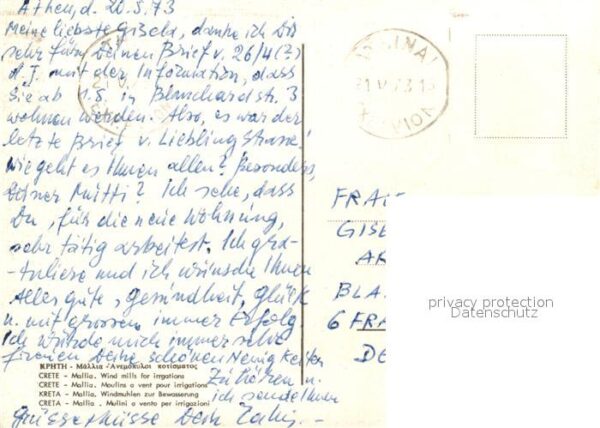 Athen, d. 20.5.73
Meine liebste Gisela, danke ich Dir
sehr für Deinen Brief v. 26/4(?)
d.J. mit der Information, dass
Sie ab 1.8. in Blanchardstr. 3
wohnen werden. Also, es war der
letzte Brief v. Lieblingstrasse!
Wie geht es Ihnen allen? Besonders,
Deiner Mutti? Ich sehe, dass
Du, für die neue Wohnung,
sehr tätig arbeitest. Ich gra-
-tuliere und ich wünsche Ihnen
Alles gute, Gesundheit, Glück
u. mit grossem immer Erfolg.
Ich würde mich immer sehr
freuen Deine schönen Neuigkeiten
zu hören u.
ich sende Ihnen
Grüsse Küsse Dein
ΚΡΗΤΗ - Μάλλια - Ἀνεμόμυλοι ποτίσματος
CRETE - Mallia. Wind mills for irrigations
CRETE - Mallia. Moulins a vent pour irrigations
KRETA - Mallia. Windmuhlen zur Bewasserung
CRETA - Mallia. Mulini a vento per irrigazioni
FRA
GISE
BLA
6 FRA
DE
privacy protection
Datenschutz